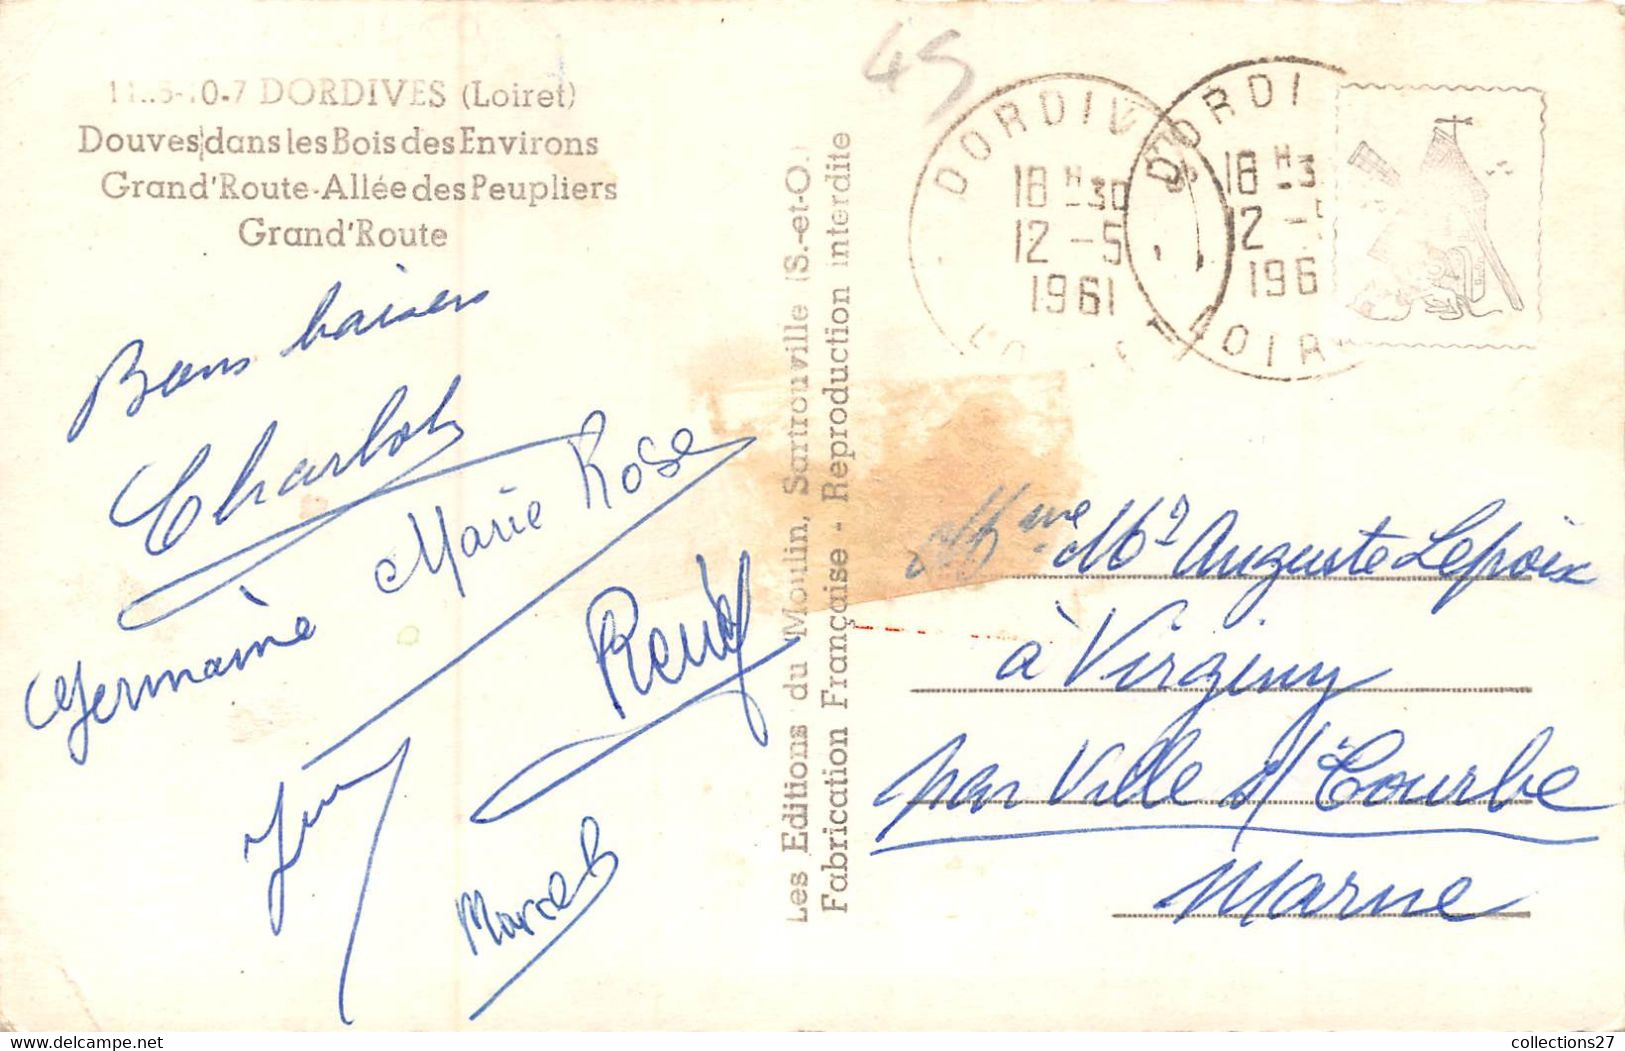 DORDIVES (Loiret)
Douves dans les Bois des Environs
Grand'Route-Allée des Peupliers
Grand'Route
Bons baisers
Charlot
Marie Rose
Germaine
René
Marcel
Les Editions du Moulin, Sartrouville (S.-et-O.)
Fabrication Française - Reproduction interdite
45
DORDIV
18 H 30
12 -5
1961
DORDI
18 H 3
12 -5
196
LOIR
Mme Mr Auguste Lepoix
à Virginy
par Ville s/ Tourbe
Marne
collections27